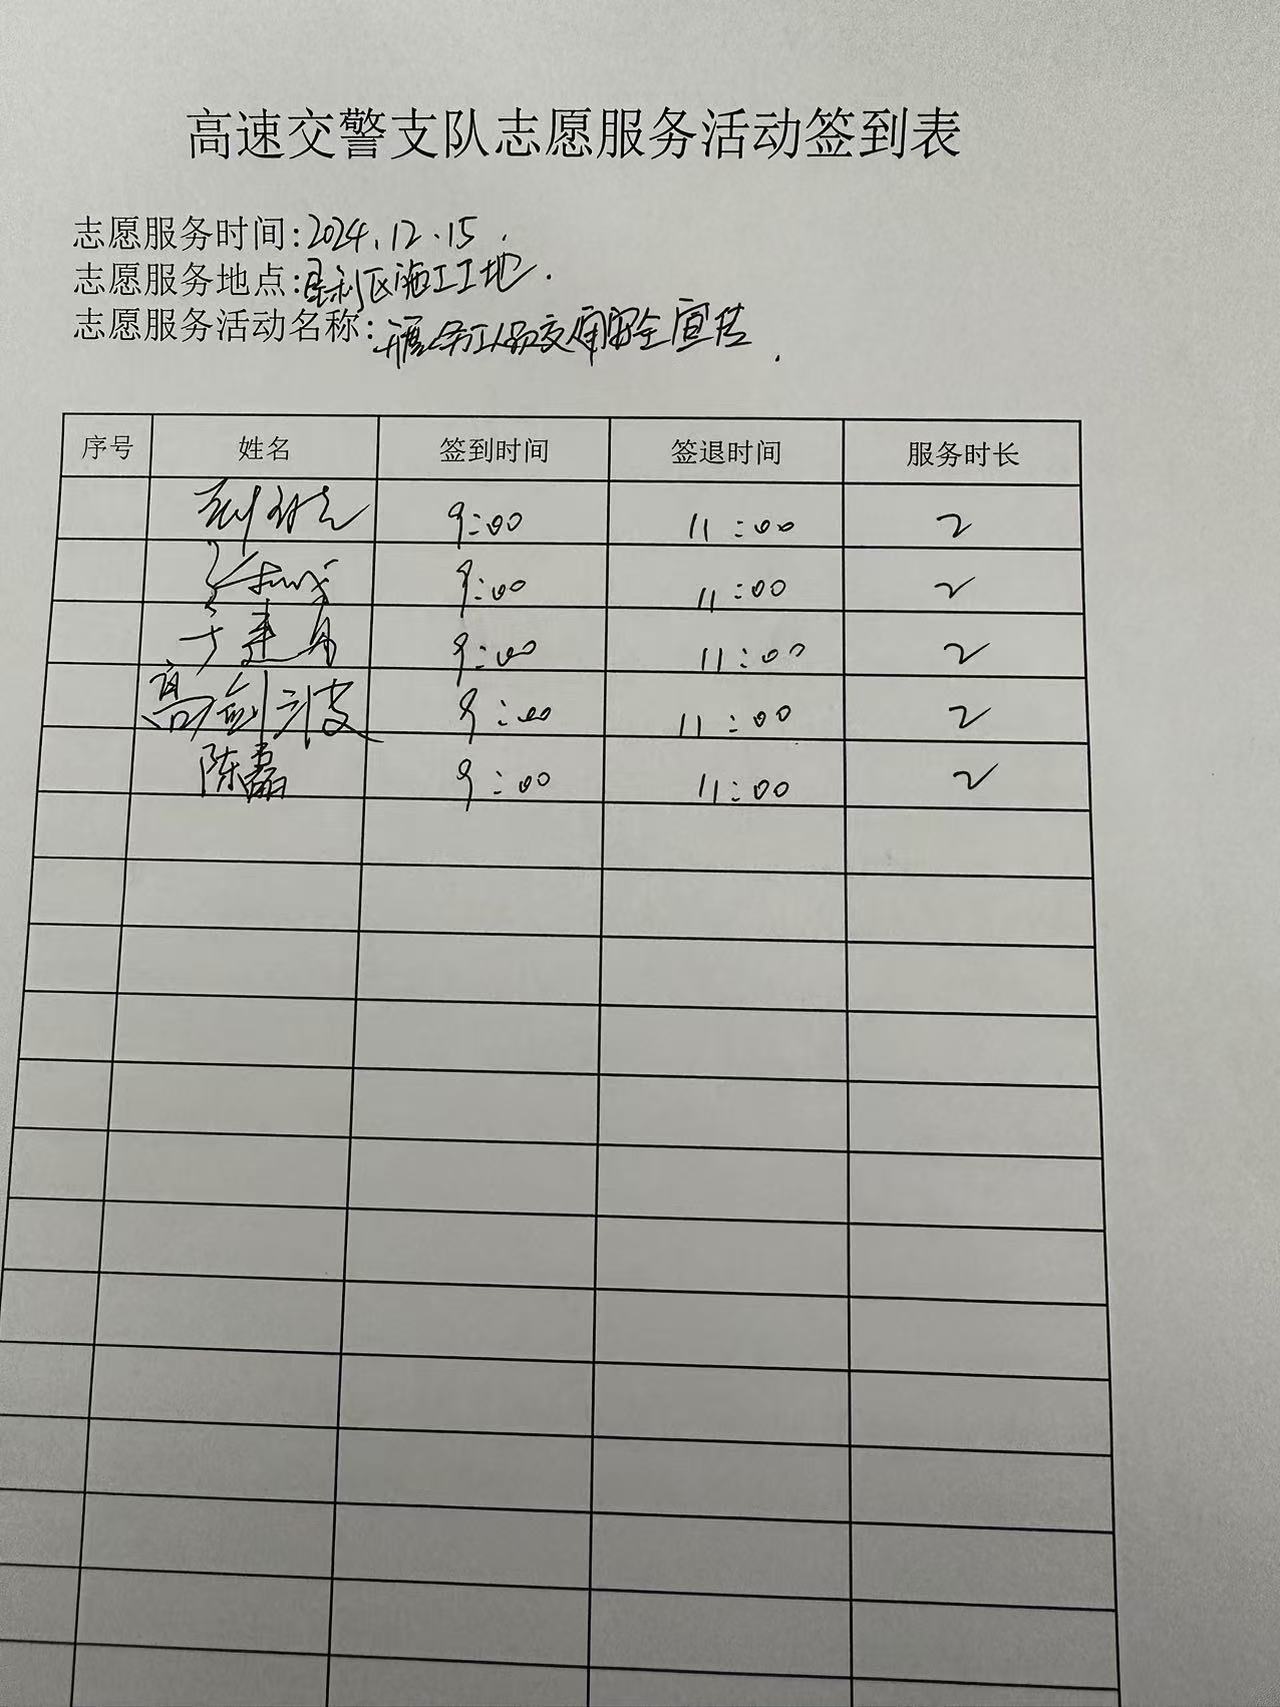 高速交警支队志愿服务活动签到表
志愿服务时间:2024.12.15.
志愿服务地点:垦利区施工工地.
志愿服务活动名称:务工人员交通安全宣传.
序号 姓名 签到时间 签退时间 服务时长
9:00 11:00 2
9:00 11:00 2
建 9:00 11:00 2
高剑波 9:00 11:00 2
陈磊 9:00 11:00 2